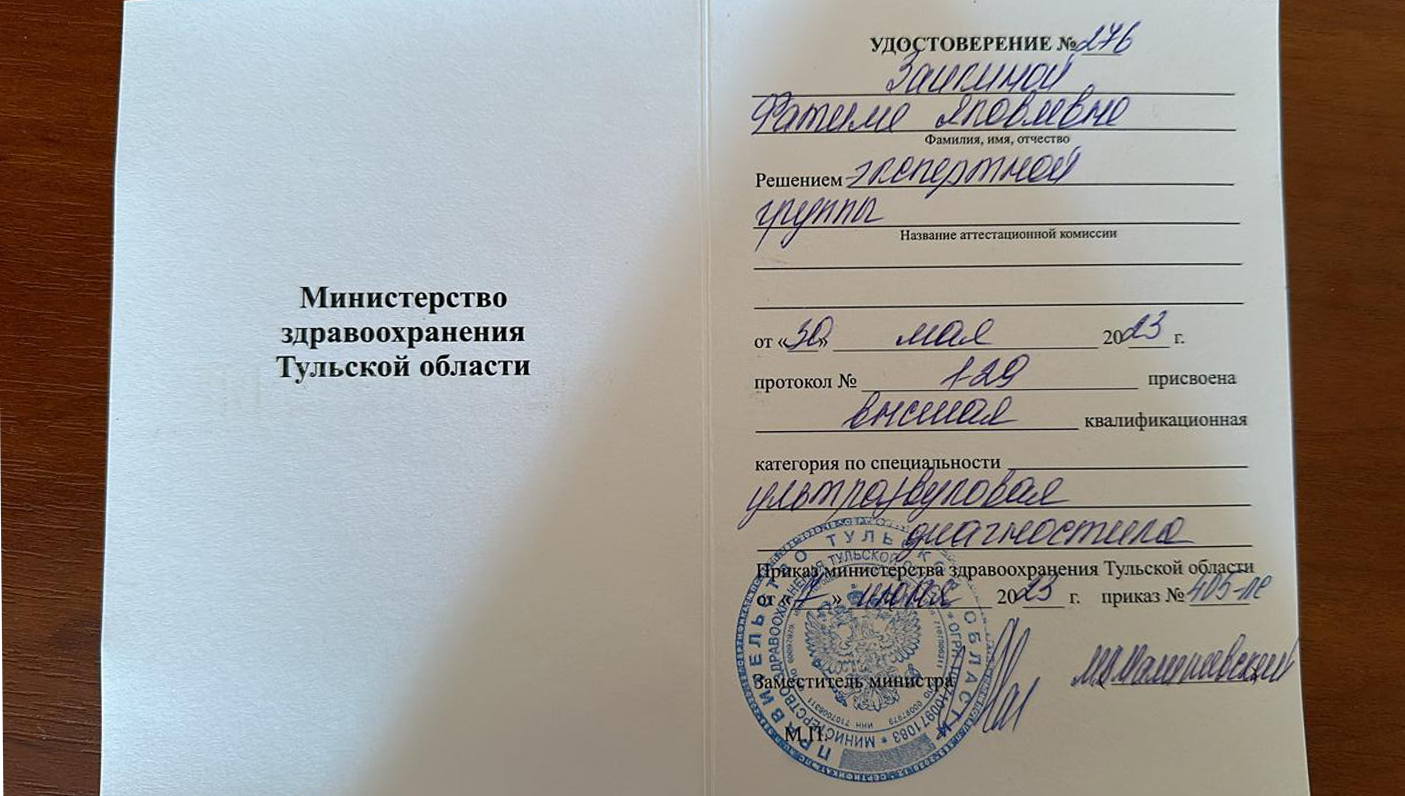 Министерство
здравоохранения
Тульской области
УДОСТОВЕРЕНИЕ № 276
Заикиной
Фатиме Яковлевне
Фамилия, имя, отчество
Решением экспертной
группы
Название аттестационной комиссии
от «30» мая 2023 г.
протокол № 1-29 присвоена
высшая квалификационная
категория по специальности
ультразвуковая
диагностика
Приказ министерства здравоохранения Тульской области
от «7» июня 2023 г. приказ № 405-лс
Заместитель министра
М.П.
ПРАВИТЕЛЬСТВО ТУЛЬСКОЙ ОБЛАСТИ
МИНИСТЕРСТВО ЗДРАВООХРАНЕНИЯ ТУЛЬСКОЙ